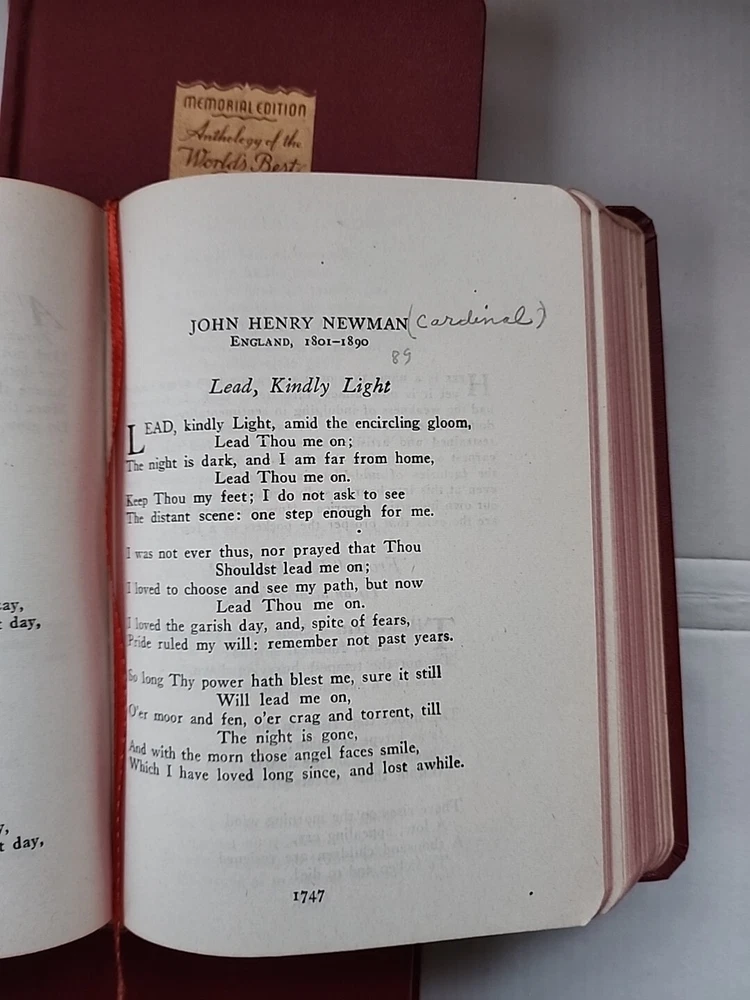 MEMORIAL EDITION
Anthology of the
World's Best
JOHN HENRY NEWMAN (Cardinal)
ENGLAND, 1801–1890
89
Lead, Kindly Light
LEAD, kindly Light, amid the encircling gloom,
Lead Thou me on;
The night is dark, and I am far from home,
Lead Thou me on.
Keep Thou my feet; I do not ask to see
The distant scene: one step enough for me.
I was not ever thus, nor prayed that Thou
Shouldst lead me on;
I loved to choose and see my path, but now
Lead Thou me on.
I loved the garish day, and, spite of fears,
Pride ruled my will: remember not past years.
So long Thy power hath blest me, sure it still
Will lead me on,
O'er moor and fen, o'er crag and torrent, till
The night is gone,
And with the morn those angel faces smile,
Which I have loved long since, and lost awhile.
1747
day,
day,